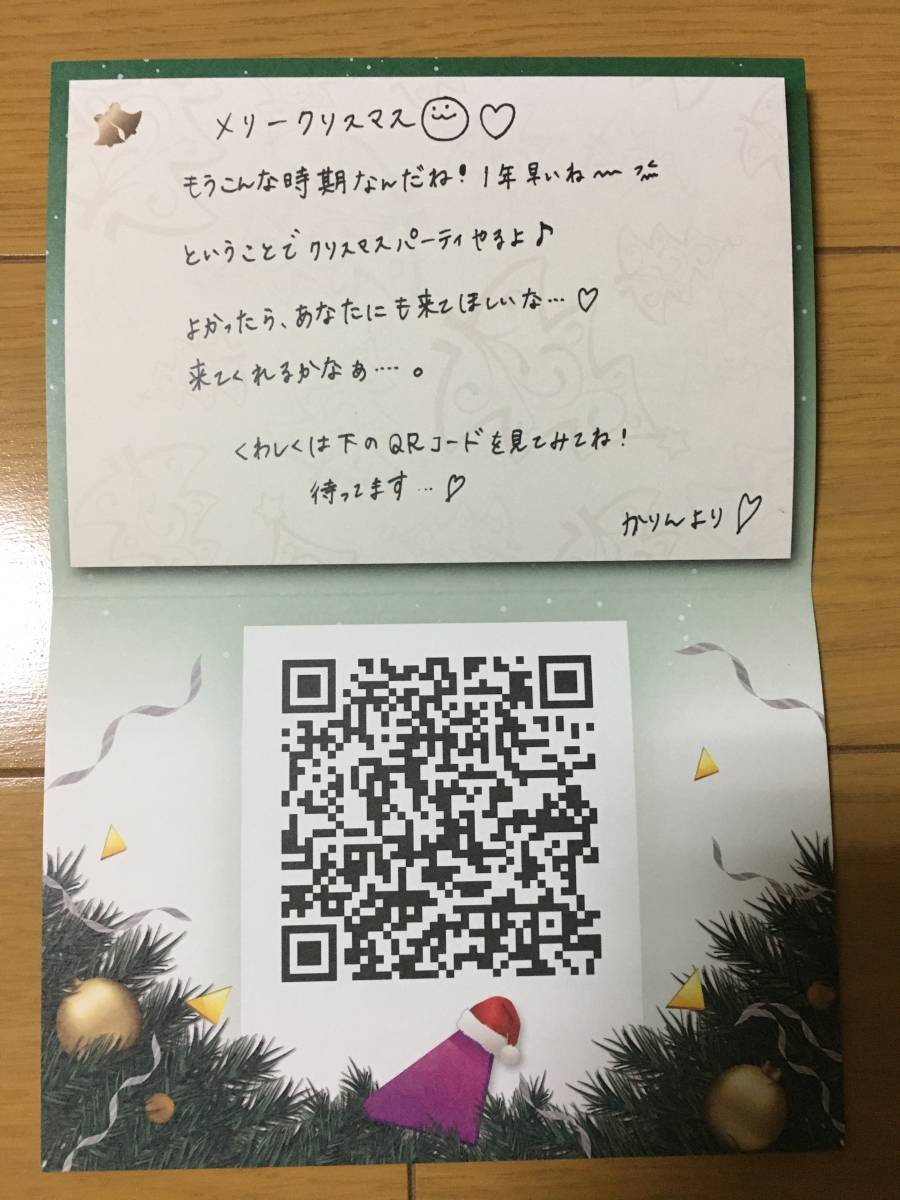 メリークリスマス
もうこんな時期なんだね！1年早いね〜
ということでクリスマスパーティやるよ♪
よかったら、あなたにも来てほしいな…♡
来てくれるかなぁ….。
くわしくは下のQRコードを見てみてね！
待ってます…♡
かりんより♡